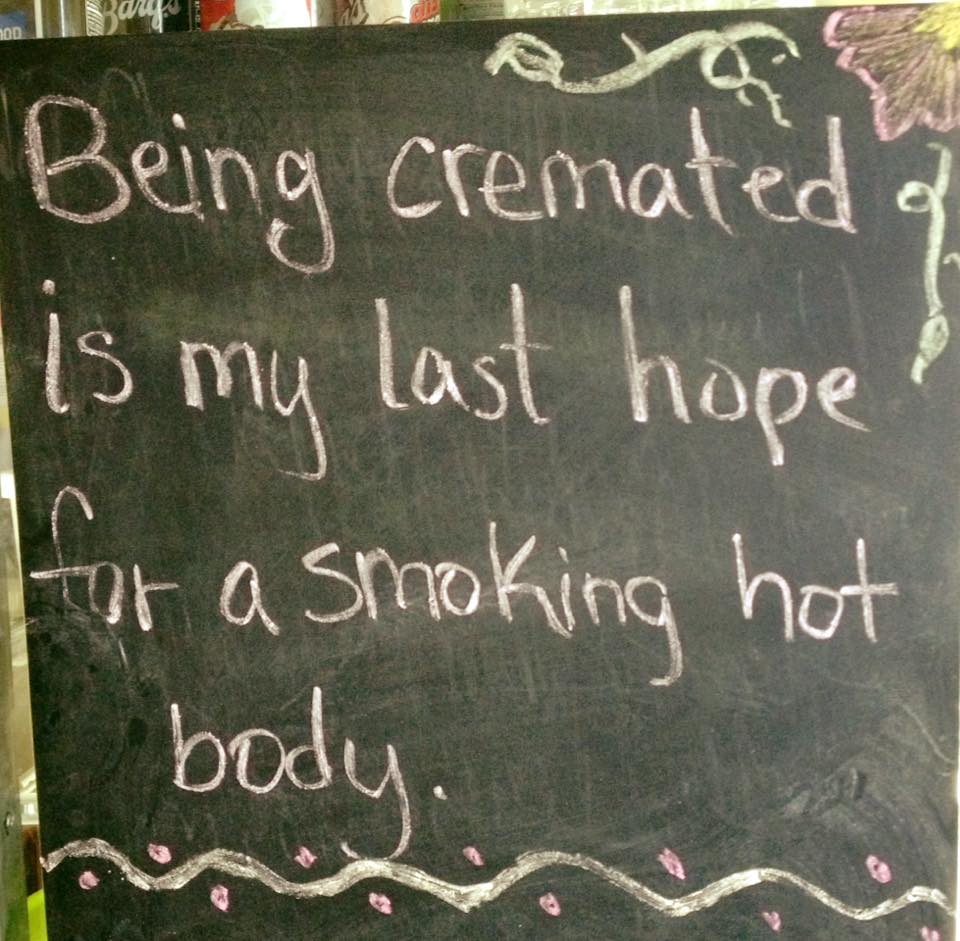 Barq's
Being cremated
is my last hope
for a smoking hot
body.